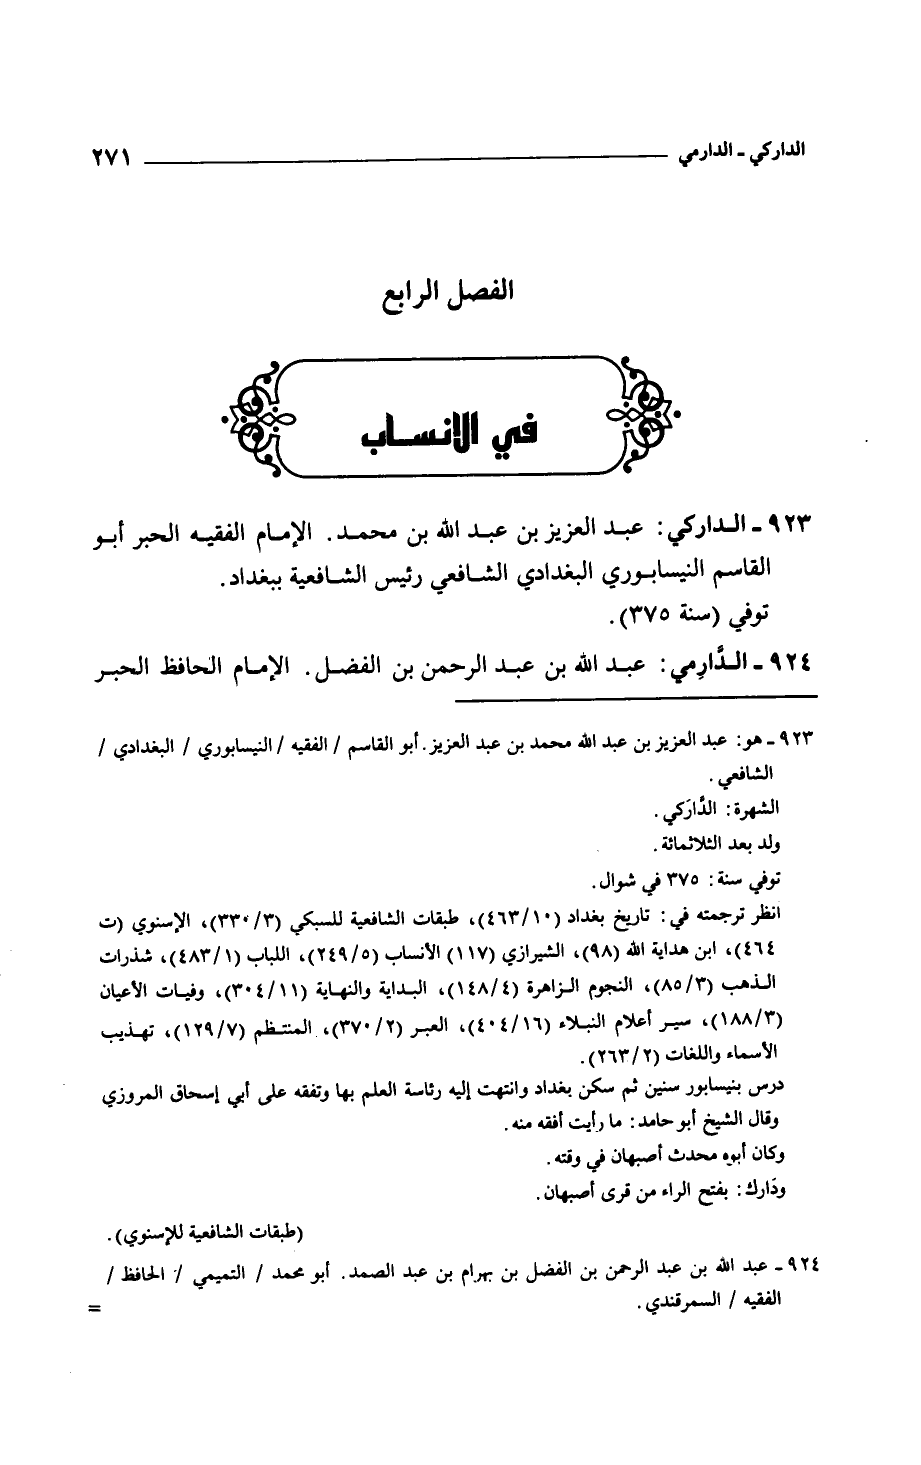 الداركي - الدارمي ٢٧١
الفصل الرابع
في الانساب
٩٢٣ - الداركي: عبد العزيز بن عبد الله بن محمد. الإمام الفقيه الحبر أبو
القاسم النيسابوري البغدادي الشافعي رئيس الشافعية ببغداد.
توفي (سنة ٣٧٥).
٩٢٤ - الدَّارِمي: عبد الله بن عبد الرحمن بن الفضل. الإمام الحافظ الحبر
٩٢٣ - هو: عبد العزيز بن عبد الله محمد بن عبد العزيز. أبو القاسم / الفقيه / النيسابوري / البغدادي /
الشافعي.
الشهرة: الدَّارَكي.
ولد بعد الثلاثمائة.
توفي سنة: ٣٧٥ في شوال.
انظر ترجمته في: تاريخ بغداد (٤٦٣/١٠)، طبقات الشافعية للسبكي (٣٣٠/٣)، الإسنوي (ت
٤٦٤)، ابن هداية الله (٩٨)، الشيرازي (١١٧) الأنساب (٢٤٩/٥)، اللباب (٤٨٣/١)، شذرات
الذهب (٨٥/٣)، النجوم الزاهرة (١٤٨/٤)، البداية والنهاية (٣٠٤/١١)، وفيات الأعيان
(١٨٨/٣)، سير أعلام النبلاء (٤٠٤/١٦)، العبر (٣٧٠/٢)، المنتظم (١٢٩/٧)، تهذيب
الأسماء واللغات (٢٦٣/٢).
درس بنيسابور سنين ثم سكن بغداد وانتهت إليه رئاسة العلم بها وتفقه على أبي إسحاق المروزي
وقال الشيخ أبو حامد: ما رأيت أفقه منه.
وكان أبوه محدث أصبهان في وقته.
ودَارك: بفتح الراء من قرى أصبهان.
(طبقات الشافعية للإسنوي).
٩٢٤ - عبد الله بن عبد الرحمن بن الفضل بن بهرام بن عبد الصمد. أبو محمد / التميمي / الحافظ /
الفقيه / السمرقندي. =